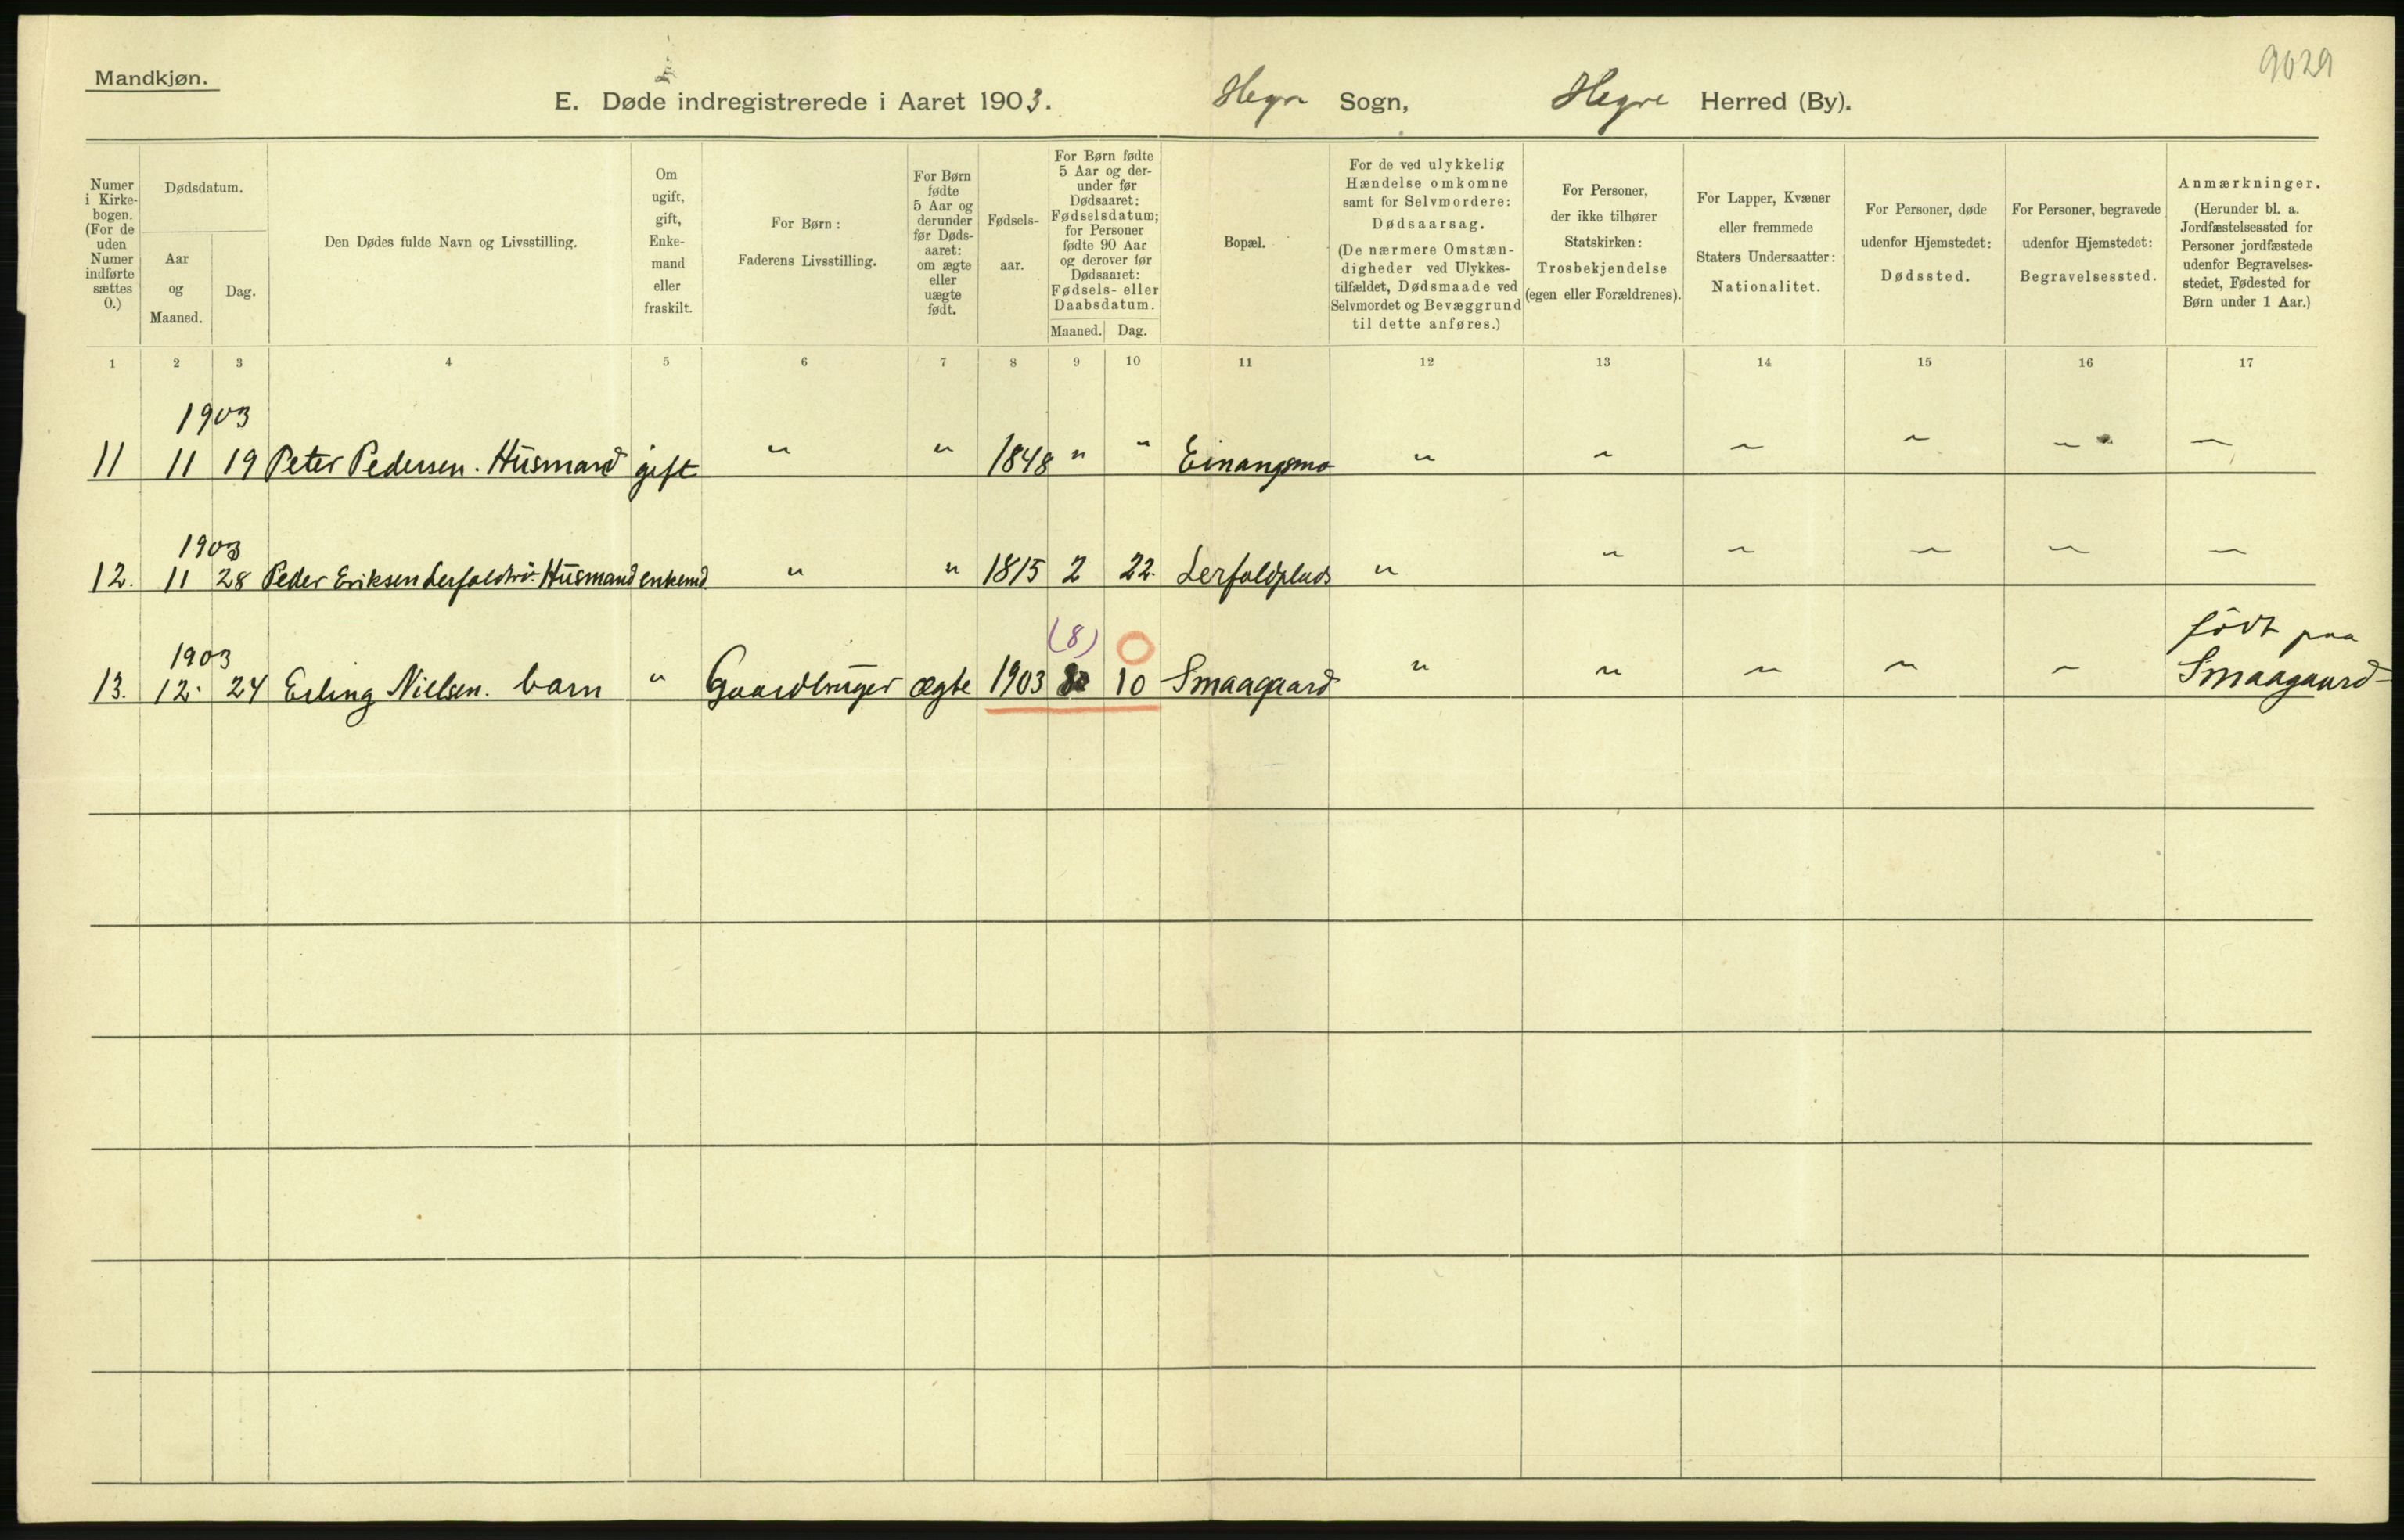 Mandkjøn.
9029
E. Døde indregistrerede i Aaret 1903. Hegre Sogn, Hegre Herred (By).
Numer i Kirkebogen. (For de uden Numer indførte sættes O.)
Dødsdatum.
Aar og Maaned.
Dag.
Den Dødes fulde Navn og Livsstilling.
Om ugift, gift, Enkemand eller fraskilt.
For Børn: Faderens Livsstilling.
For Børn fødte 5 Aar og derunder før Dødsaaret: om ægte eller uægte født.
Fødselsaar.
For Børn fødte 5 Aar og derunder før Dødsaaret: Fødselsdatum; for Personer fødte 90 Aar og derover før Dødsaaret: Fødsels- eller Daabsdatum.
Maaned. Dag.
Bopæl.
For de ved ulykkelig Hændelse omkomne samt for Selvmordere: Dødsaarsag. (De nærmere Omstændigheder ved Ulykkestilfældet, Dødsmaade ved Selvmordet og Bevæggrund til dette anføres.)
For Personer, der ikke tilhører Statskirken: Trosbekjendelse (egen eller Forældrenes).
For Lapper, Kvæner eller fremmede Staters Undersaatter: Nationalitet.
For Personer, døde udenfor Hjemstedet: Dødssted.
For Personer, begravede udenfor Hjemstedet: Begravelsessted.
Anmærkninger. (Herunder bl. a. Jordfæstelsessted for Personer jordfæstede udenfor Begravelsesstedet, Fødested for Børn under 1 Aar.)
1 2 3 4 5 6 7 8 9 10 11 12 13 14 15 16 17
1903
11 11 19 Peter Pedersen. Husmand gift " " 1848 " " Einangsmo " " " " " "
1903
12. 11 28 Peder Eriksen Husmand enkemd " " 1815 2 22. Lerfaldplads " " " " " "
(8)
1903 født paa
13. 12. 24 Erling Nielsen. barn " Gaardbruger ægte 1903 8 10 Smaagaard " " " " " Smaagaard